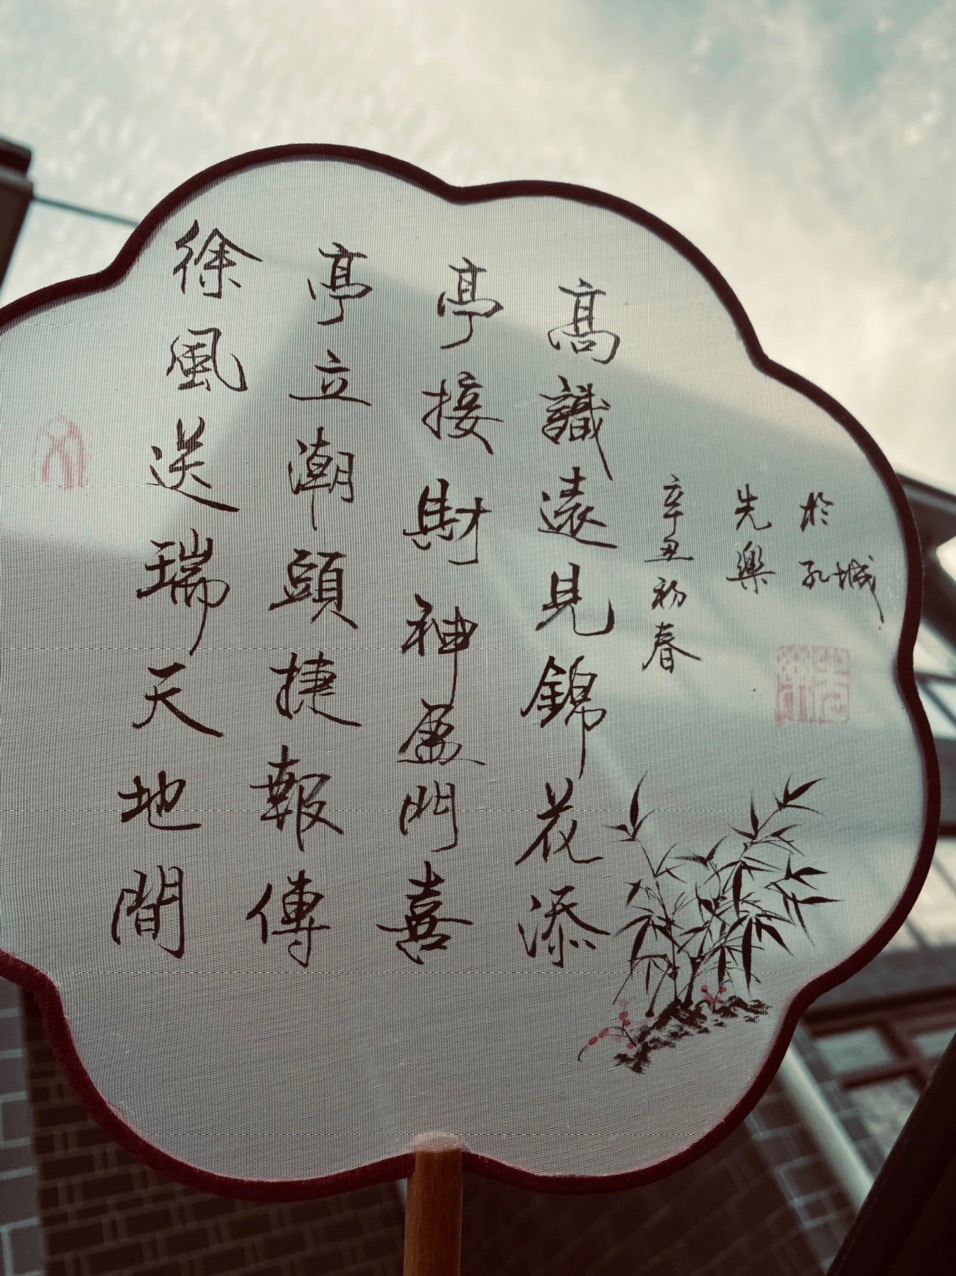 徐風送瑞天地間
亭立潮頭捷報傳
亭接財神盈門喜
高識遠見錦花添
辛丑初春
先樂
於孔城